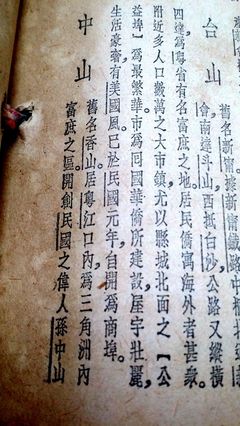 台山
舊名新寧新寧鐵路中樞北
會南達斗山西抵白沙公路又縱橫
四達爲粤省有名富庶之地居民僑寓海外者甚衆。
附近多人口數萬之大市鎮尤以縣城北面之【公
益埠】爲最繁華市爲囘國華僑所建設屋宇壯麗，
生活豪奢有美國風已於民國元年自開爲商埠。
中山
舊名香山居粤江口內爲三角洲內
富庶之區開創民國之偉人孫中山